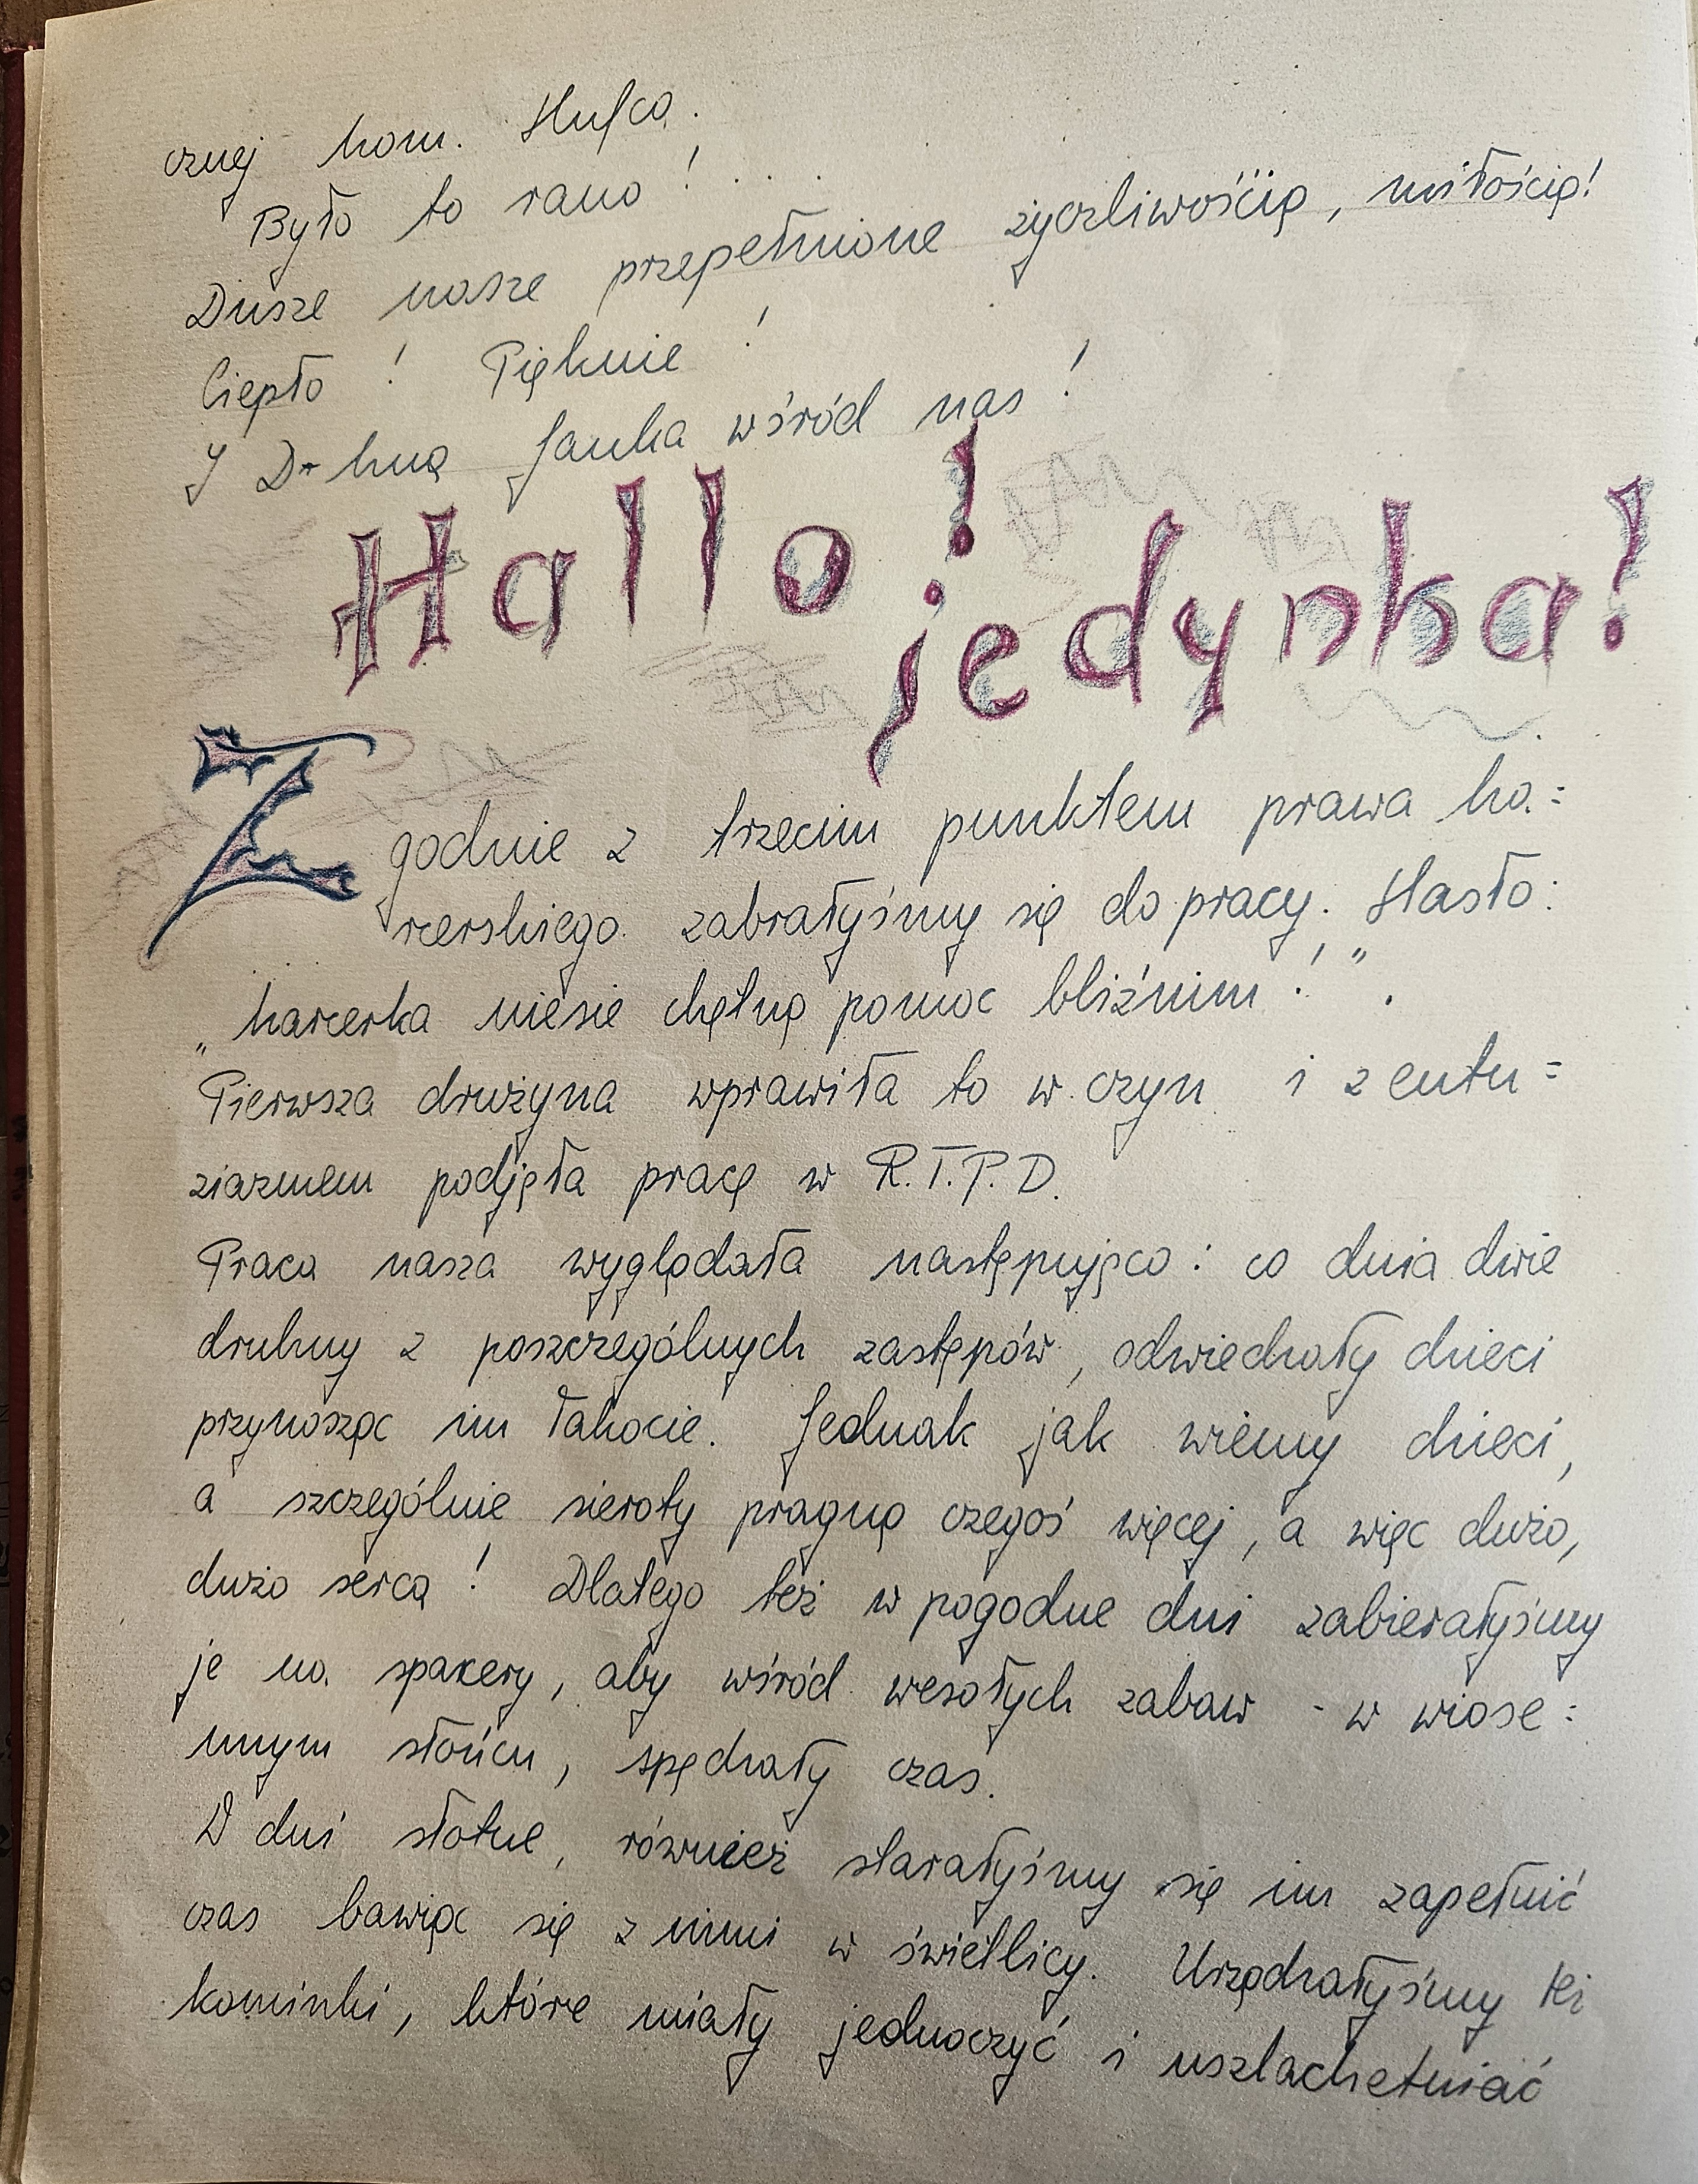 cznej kom. Hufca.
Było to rano! . . .
Dusze nasze przepełnione życzliwością, miłością!
Ciepło! Pięknie!
I Dr-hna Janka wśród nas!
Hallo! jedynka!
Zgodnie z trzecim punktem prawa ha=
rcerskiego zabrałyśmy się do pracy. Hasło:
„harcerka niesie chętną pomoc bliźnim!".
Pierwsza drużyna wprawiła to w czyn i z entu=
zjazmem podjęła pracę w R.T.P.D.
Praca nasza wyglądała następująco: co dnia dwie
druhny z poszczególnych zastępów, odwiedzały dzieci
przynosząc im łakocie. Jednak jak wiemy dzieci,
a szczególnie sieroty pragną czegoś więcej, a więc dużo,
dużo serca! Dlatego też w pogodne dni zabierałyśmy
je na spacery, aby wśród wesołych zabaw - w wiose=
nnym słońcu, spędzały czas.
W dni słotne, również starałyśmy się im zapełnić
czas bawiąc się z nimi w świetlicy. Urządzałyśmy też
kominki, które miały jednoczyć i uszlachetniać